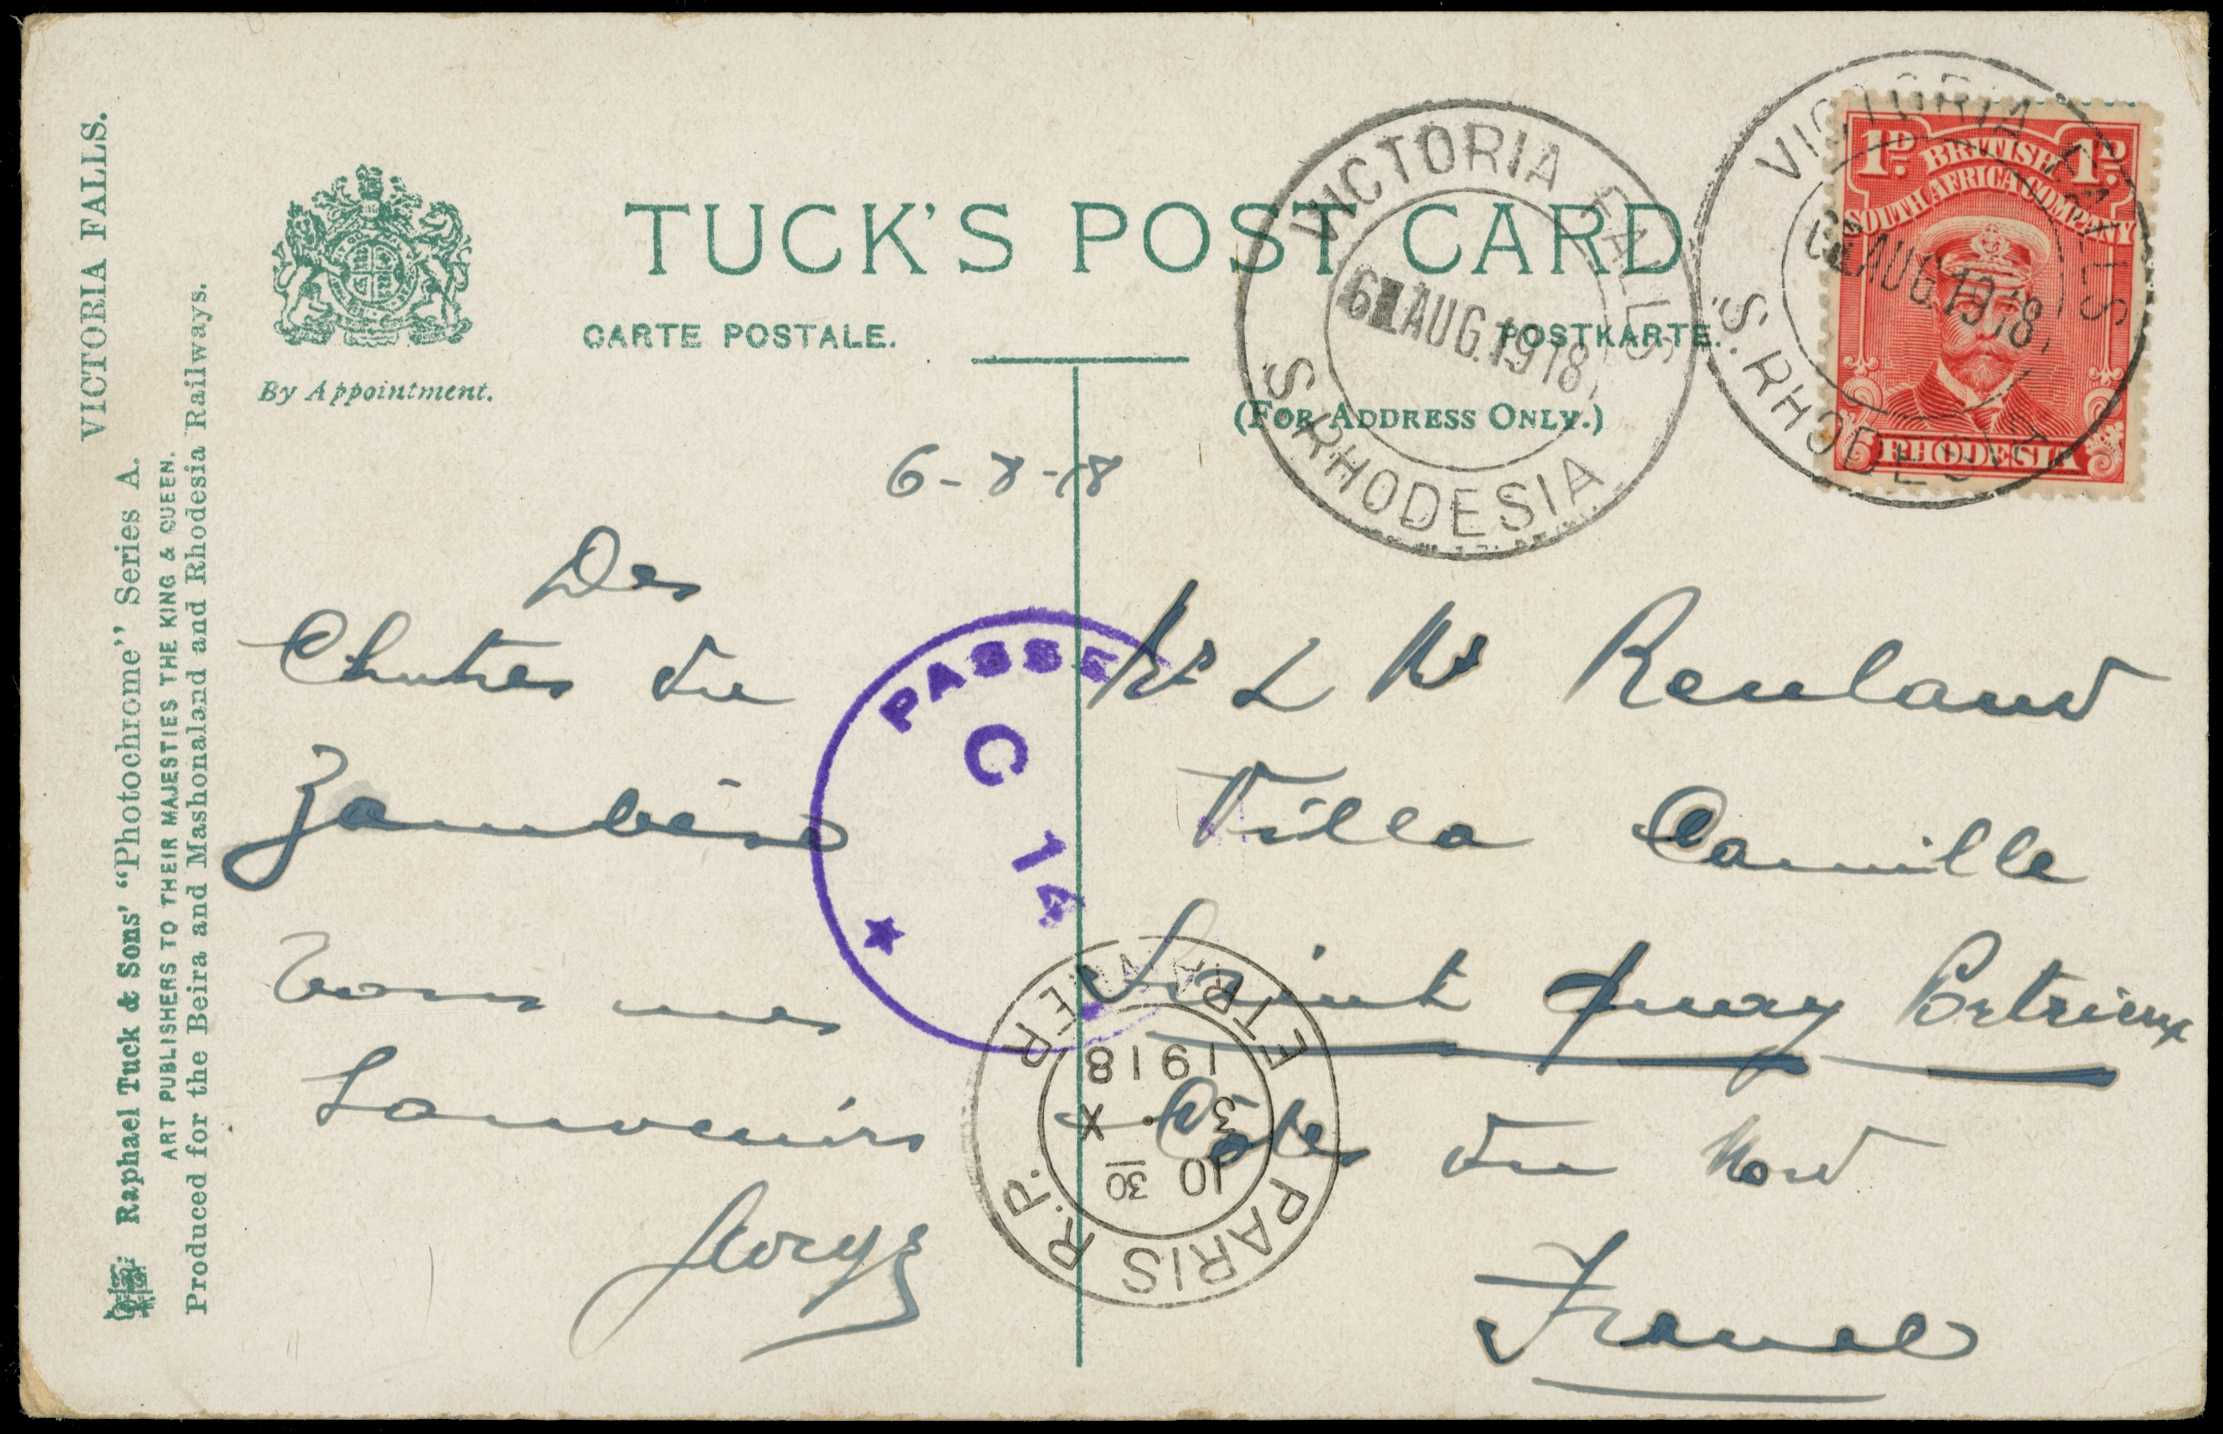 VICTORIA FALLS.
Raphael Tuck & Sons' "Photochrome" Series A.
ART PUBLISHERS TO THEIR MAJESTIES THE KING & QUEEN.
Produced for the Beira and Mashonaland and Rhodesia Railways.
By Appointment.
TUCK'S POST CARD
CARTE POSTALE.
POSTKARTE.
(FOR ADDRESS ONLY.)
VICTORIA FALLS
6 AUG. 1918
S. RHODESIA
VICTORIA FALLS
6 AUG. 1918
S. RHODESIA
1D 1D
BRITISH
SOUTH AFRICA COMPANY
RHODESIA
6-8-18
Des
Chutes du
Zambèse
tous mes
Souvenirs
Georges
PASSE
C
14
Renland
Villa Camille
Saint Quay Portrieux
Côtes du Nord
France
PARIS R.P.
10 30
3 . X
1918
ETRANGER